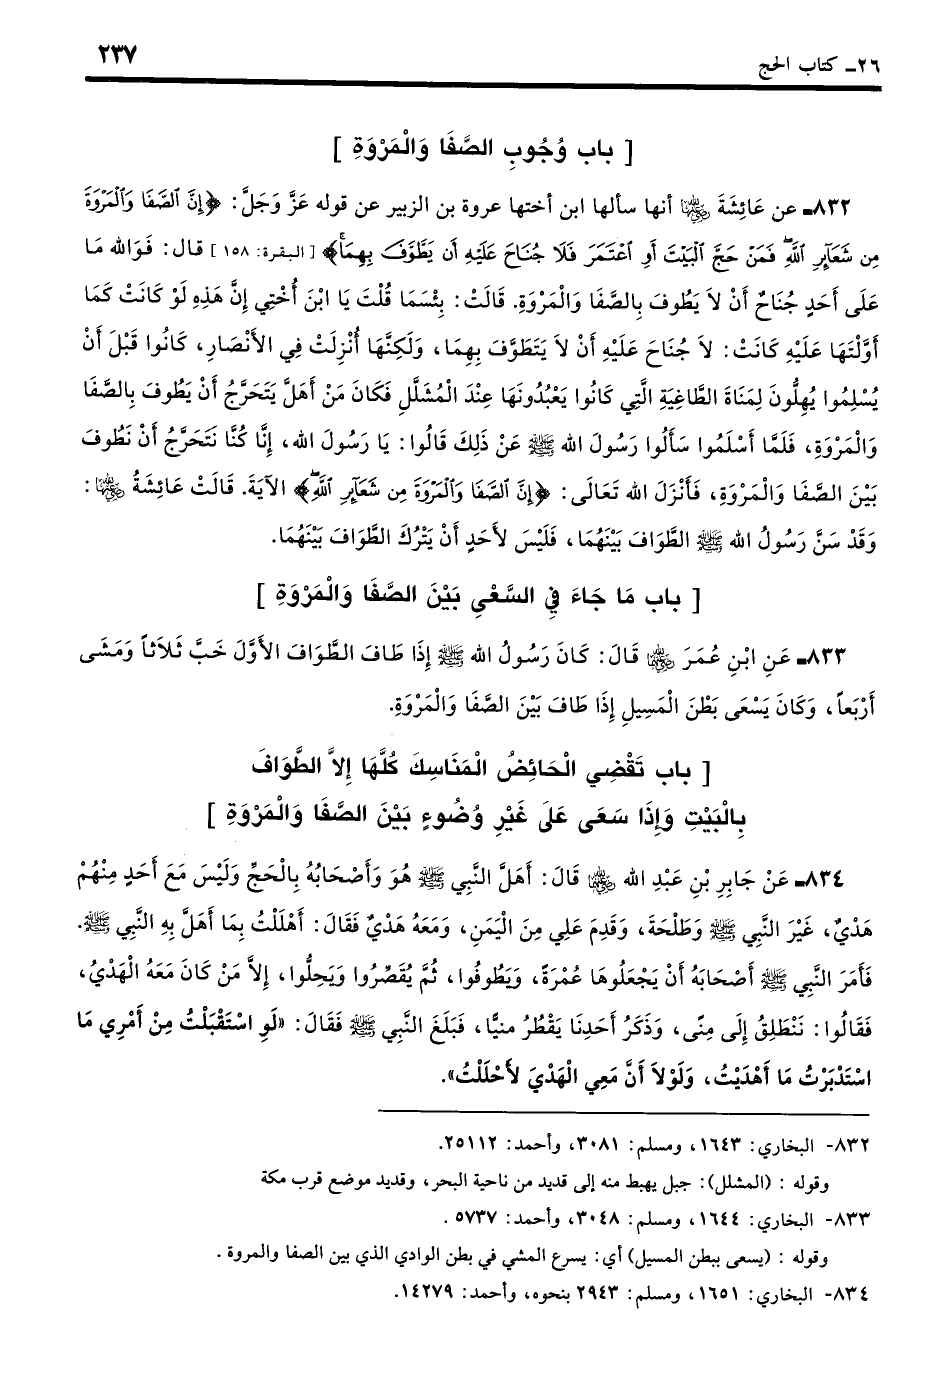 ٢٦ـ كتاب الحج
٢٣٧
[ باب وُجُوبِ الصَّفَا وَالْمَرْوَةِ ]
٨٣٢ـ عن عَائِشَةَ رضي الله عنها أنها سألها ابن أختها عروة بن الزبير عن قوله عَزَّ وَجَلَّ: ﴿إِنَّ ٱلصَّفَا وَٱلْمَرْوَةَ
مِن شَعَآئِرِ ٱللَّهِۖ فَمَنْ حَجَّ ٱلْبَيْتَ أَوِ ٱعْتَمَرَ فَلَا جُنَاحَ عَلَيْهِ أَن يَطَّوَّفَ بِهِمَاۚ﴾ [البقرة: ١٥٨] قال: فَوَالله مَا
عَلَى أَحَدٍ جُنَاحٌ أَنْ لاَ يَطُوفَ بِالصَّفَا وَالْمَرْوَةِ. قَالَتْ: بِئْسَمَا قُلْتَ يَا ابْنَ أُخْتِي إِنَّ هَذِهِ لَوْ كَانَتْ كَمَا
أَوَّلْتَهَا عَلَيْهِ كَانَتْ: لاَ جُنَاحَ عَلَيْهِ أَنْ لاَ يَتَطَوَّفَ بِهِمَا، وَلَكِنَّهَا أُنْزِلَتْ فِي الأَنْصَارِ، كَانُوا قَبْلَ أَنْ
يُسْلِمُوا يُهِلُّونَ لِمَنَاةَ الطَّاغِيَةِ الَّتِي كَانُوا يَعْبُدُونَهَا عِنْدَ الْمُشَلَّلِ فَكَانَ مَنْ أَهَلَّ يَتَحَرَّجُ أَنْ يَطُوفَ بِالصَّفَا
وَالْمَرْوَةِ، فَلَمَّا أَسْلَمُوا سَأَلُوا رَسُولَ الله ﷺ عَنْ ذَلِكَ قَالُوا: يَا رَسُولَ الله، إِنَّا كُنَّا نَتَحَرَّجُ أَنْ نَطُوفَ
بَيْنَ الصَّفَا وَالْمَرْوَةِ، فَأَنْزَلَ الله تَعَالَى: ﴿إِنَّ ٱلصَّفَا وَٱلْمَرْوَةَ مِن شَعَآئِرِ ٱللَّهِۖ﴾ الآيَةَ. قَالَتْ عَائِشَةُ رضي الله عنها:
وَقَدْ سَنَّ رَسُولُ الله ﷺ الطَّوَافَ بَيْنَهُمَا، فَلَيْسَ لأَحَدٍ أَنْ يَتْرُكَ الطَّوَافَ بَيْنَهُمَا.
[ باب مَا جَاءَ فِي السَّعْيِ بَيْنَ الصَّفَا وَالْمَرْوَةِ ]
٨٣٣ـ عَنِ ابْنِ عُمَرَ رضي الله عنهما قَالَ: كَانَ رَسُولُ الله ﷺ إِذَا طَافَ الطَّوَافَ الأَوَّلَ خَبَّ ثَلاَثاً وَمَشَى
أَرْبَعاً، وَكَانَ يَسْعَى بَطْنَ الْمَسِيلِ إِذَا طَافَ بَيْنَ الصَّفَا وَالْمَرْوَةِ.
[ باب تَقْضِي الْحَائِضُ الْمَنَاسِكَ كُلَّهَا إِلاَّ الطَّوَافَ
بِالْبَيْتِ وَإِذَا سَعَى عَلَى غَيْرِ وُضُوءٍ بَيْنَ الصَّفَا وَالْمَرْوَةِ ]
٨٣٤ـ عَنْ جَابِرِ بْنِ عَبْدِ الله رضي الله عنهما قَالَ: أَهَلَّ النَّبِي ﷺ هُوَ وَأَصْحَابُهُ بِالْحَجِّ وَلَيْسَ مَعَ أَحَدٍ مِنْهُمْ
هَدْيٌ، غَيْرَ النَّبِي ﷺ وَطَلْحَةَ، وَقَدِمَ عَلِي مِنَ الْيَمَنِ، وَمَعَهُ هَدْيٌ فَقَالَ: أَهْلَلْتُ بِمَا أَهَلَّ بِهِ النَّبِي ﷺ.
فَأَمَرَ النَّبِي ﷺ أَصْحَابَهُ أَنْ يَجْعَلُوهَا عُمْرَةً، وَيَطُوفُوا، ثُمَّ يُقَصِّرُوا وَيَحِلُّوا، إِلاَّ مَنْ كَانَ مَعَهُ الْهَدْيُ،
فَقَالُوا: نَنْطَلِقُ إِلَى مِنًى، وَذَكَرُ أَحَدِنَا يَقْطُرُ منيًّا، فَبَلَغَ النَّبِي ﷺ فَقَالَ: «لَوِ اسْتَقْبَلْتُ مِنْ أَمْرِي مَا
اسْتَدْبَرْتُ مَا أَهْدَيْتُ، وَلَوْلاَ أَنَّ مَعِي الْهَدْيَ لأَحْلَلْتُ».
٨٣٢- البخاري: ١٦٤٣، ومسلم: ٣٠٨١، وأحمد: ٢٥١١٢.
وقوله : (المشلل): جبل يهبط منه إلى قديد من ناحية البحر، وقديد موضع قرب مكة
٨٣٣- البخاري: ١٦٤٤، ومسلم: ٣٠٤٨، وأحمد: ٥٧٣٧ .
وقوله : (يسعى ببطن المسيل) أي: يسرع المشي في بطن الوادي الذي بين الصفا والمروة .
٨٣٤- البخاري: ١٦٥١، ومسلم: ٢٩٤٣ بنحوه، وأحمد: ١٤٢٧٩.